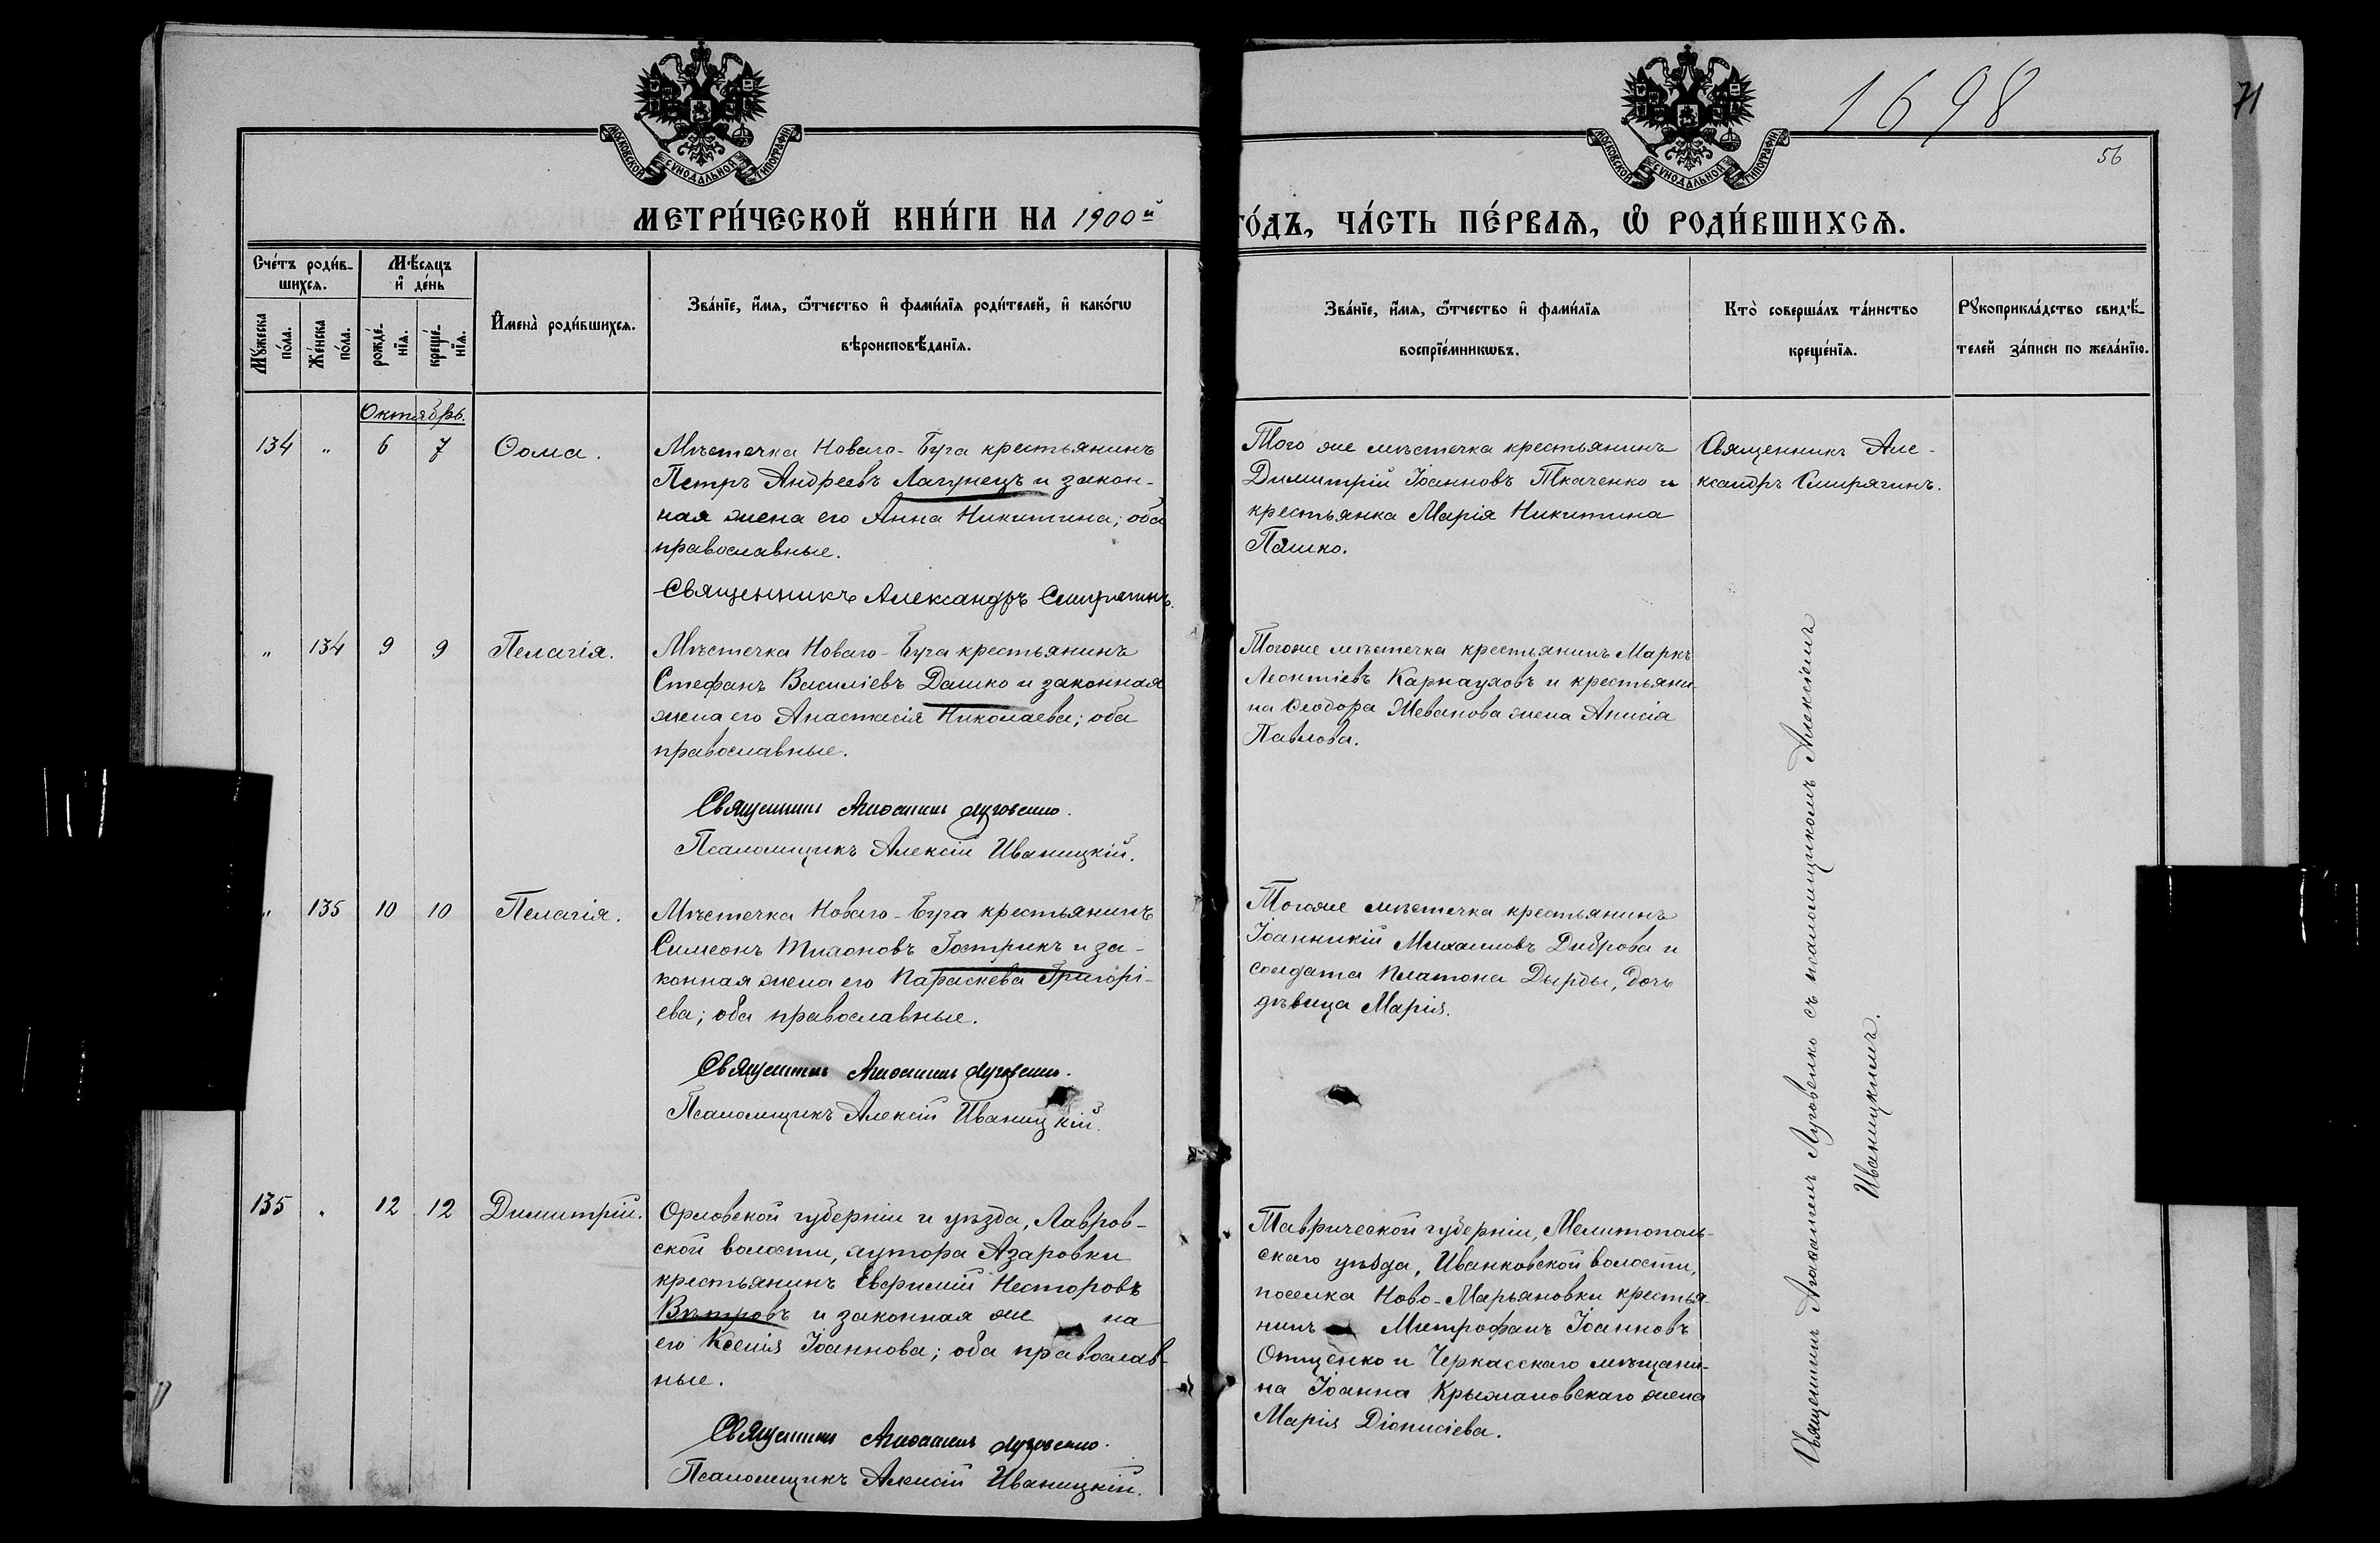 1698
71
56
МОСКОВСКОЙ СУНОДАЛЬНОЙ ТИПОГРАФІИ.
МОСКОВСКОЙ СУНОДАЛЬНОЙ ТИПОГРАФІИ.
МЕТРИ́ЧЕСКОЙ КНИ́ГИ НА 1900й
ГО́ДЪ, ЧА́СТЬ ПЕ́РВАѦ, Ѡ҆ РОДИ́ВШИХСѦ.
Сче́тъ роди́в-
шихсѧ.
Мꙋ́жеска
по́ла.
Же́нска
по́ла.
Мѣ́сѧцъ
и҆ де́нь
рожде́-
нїѧ.
креще́-
нїѧ.
И҆мена̀ роди́вшихсѧ.
Зва́нїе, и҆́мѧ, ѻ҆́тчество и҆ фами́лїѧ роди́телей, и҆ како́гѡ
вѣроисповѣ́данїѧ.
Зва́нїе, и҆́мѧ, ѻ҆́тчество и҆ фами́лїѧ
воспрїе́мникѡвъ.
Кто̀ соверша́лъ та́инство
креще́нїѧ.
Рꙋкоприкла́дство свидѣ́-
телей за́писи по жела́нїю.
Октябрь.
134 " 6 7 Ѳома.
Мѣстечка Новаго-Буга крестьянинъ
Петръ Андреевъ Лагунецъ и закон-
ная жена его Анна Никитина; оба
православные.
Священникъ Александръ Смирягинъ.
Того же мѣстечка крестьянинъ
Димитрій Іоанновъ Ткаченко и
крестьянка Марія Никитина
Пашко.
Священникъ Але-
ксандръ Смирягинъ.
" 134 9 9 Пелагія.
Мѣстечка Новаго-Буга крестьянинъ
Стефанъ Василіевъ Дашко и законная
жена его Анастасія Николаева; оба
православные.
Священникъ Аѳанасій Луговенко.
Псаломщикъ Алексій Иваницкій.
Тогоже мѣстечка крестьянинъ Маркъ
Леонтіевъ Карнауховъ и крестьяни-
на Ѳеодора Жеванова жена Анисія
Павлова.
" 135 10 10 Пелагія.
Мѣстечка Новаго-Буга крестьянинъ
Симеонъ Тихоновъ Гострикъ и за-
конная жена его Параскева Григорі-
ева; оба православные.
Священникъ Аѳанасій Луговенко.
Псаломщикъ Алексій Иваницкій.
Тогоже мѣстечка крестьянинъ
Іоанникій Михаиловъ Диброва и
солдата Платона Дырды, дочь
дѣвица Марія.
135 " 12 12 Димитрій.
Орловской губерніи и уѣзда, Лавров-
ской волости, хутора Азаровки
крестьянинъ Евфимій Несторовъ
Вѣтровъ и законная же на
его Ксенія Іоаннова; оба православ-
ные.
Священникъ Аѳанасій Луговенко.
Псаломщикъ Алексій Иваницкій.
Таврической губерніи, Мелитополь-
скаго уѣзда, Иванковской волости,
поселка Ново-Марьяновки крестья-
нинъ Митрофанъ Іоанновъ
Онищенко и Черкасскаго мѣщани-
на Іоанна Крыжановскаго жена
Марія Діонисіева.
Священникъ Аѳанасій Луговенко съ псаломщикомъ Алексіемъ
Иваницкимъ.